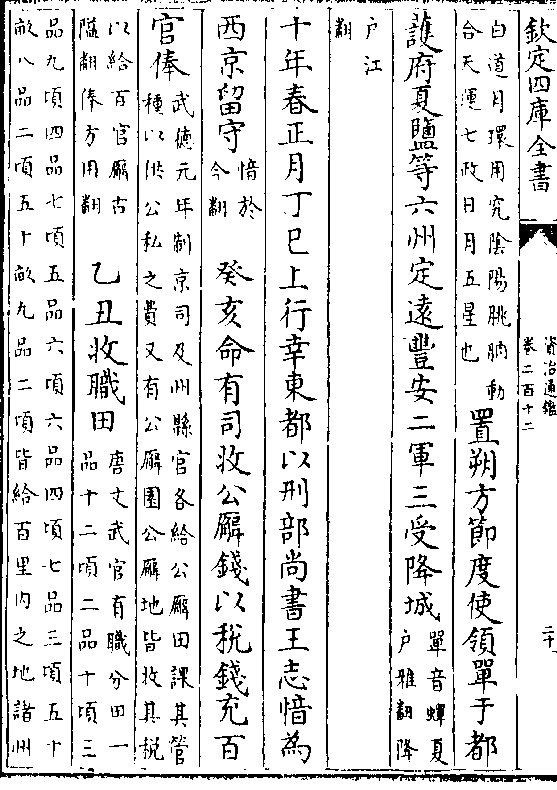 欽定四庫全書
資治通鑑
卷二百十二
二十
白道月環用究陰陽朓朒動
合天運七政日月五星也
置朔方節度使領單于都
護府夏鹽等六州定遠豐安二軍三受降城
單音蟬夏
户雅翻降
户江
翻
十年春正月丁巳上行幸東都以刑部尚書王志愔為
西京留守
愔於
今翻
癸亥命有司收公廨錢以税錢充百
官俸
武徳元年制京司及州縣官各給公廨田課其管
種以供公私之費又有公廨園公廨地皆收其税
以給百官廨古
隘翻俸方用翻
乙丑收職田
唐文武官有職分田一
品十二頃二品十頃三
品九頃四品七頃五品六頃六品四頃七品三頃五十
畝八品二頃五十畝九品二頃皆給百里内之地諸州